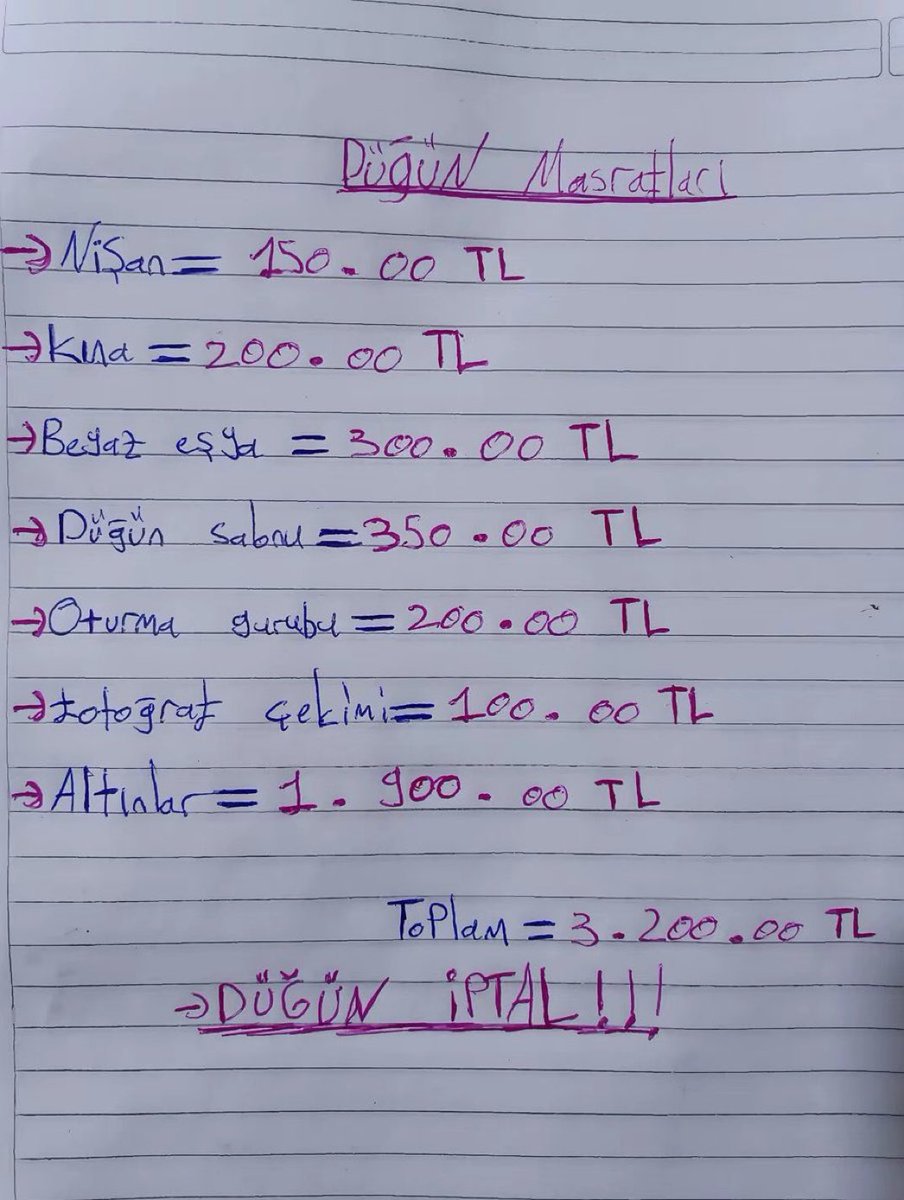 Düğün Masrafları
→ Nişan = 150.00 TL
→ Kına = 200.00 TL
→ Beyaz eşya = 300.00 TL
→ Düğün salonu = 350.00 TL
→ Oturma gurubu = 200.00 TL
→ fotoğraf çekimi = 100.00 TL
→ Altınlar = 1.900.00 TL
Toplam = 3.200.00 TL
→ DÜĞÜN İPTAL!!!